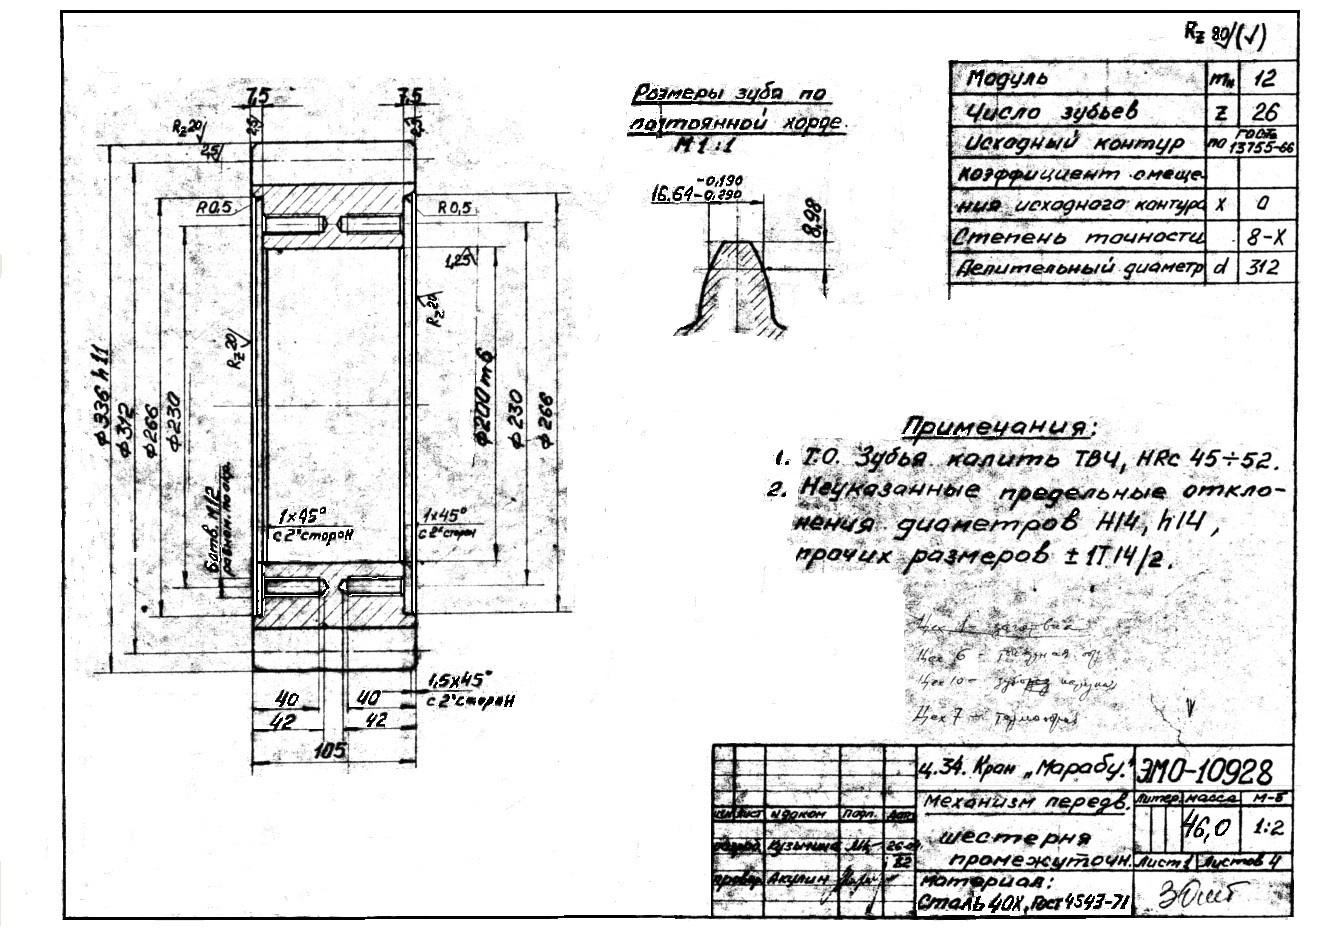 Rz 80/(√)
Модуль mн 12
Число зубьев z 26
Исходный контур по ГОСТу 13755-66
коэффициент смеще-
ния исходного контура x 0
Степень точности 8-X
Делительный диаметр d 312
Размеры зуба по
постоянной хорде.
М 1:1
16.64 -0,190 -0,290
8,98
7,5
7,5
2,5
2,5
Rz 20
2,5
R0,5
R0,5
1,25
Rz 20
Rz 20
ф336 h11
ф312
ф266
ф230
ф200m6
ф230
ф266
6 отв. М12
равном. по окр.
1x45°
с 2х сторон
1x45°
с 2х сторон
1,5x45°
с 2х сторон
40
40
42
42
105
Примечания:
1. Т.О. Зубья калить ТВЧ, HRc 45÷52.
2. Неуказанные предельные откло-
нения диаметров H14, h14,
прочих размеров ± IT14/2.
Цех 6 -
Цех 10 -
Цех 7 -
ц.34. Кран „Марабу."
ЭМО-10928
Механизм передв.
Литер. масса М-б
46,0 1:2
шестерня
промежуточн.
Лист 1 Листов 4
материал:
Сталь 40Х, Гост 4543-71
Изм Лист № докум Подп. Дата
Разраб. Кузьмина
Провер. Акулин
30шт